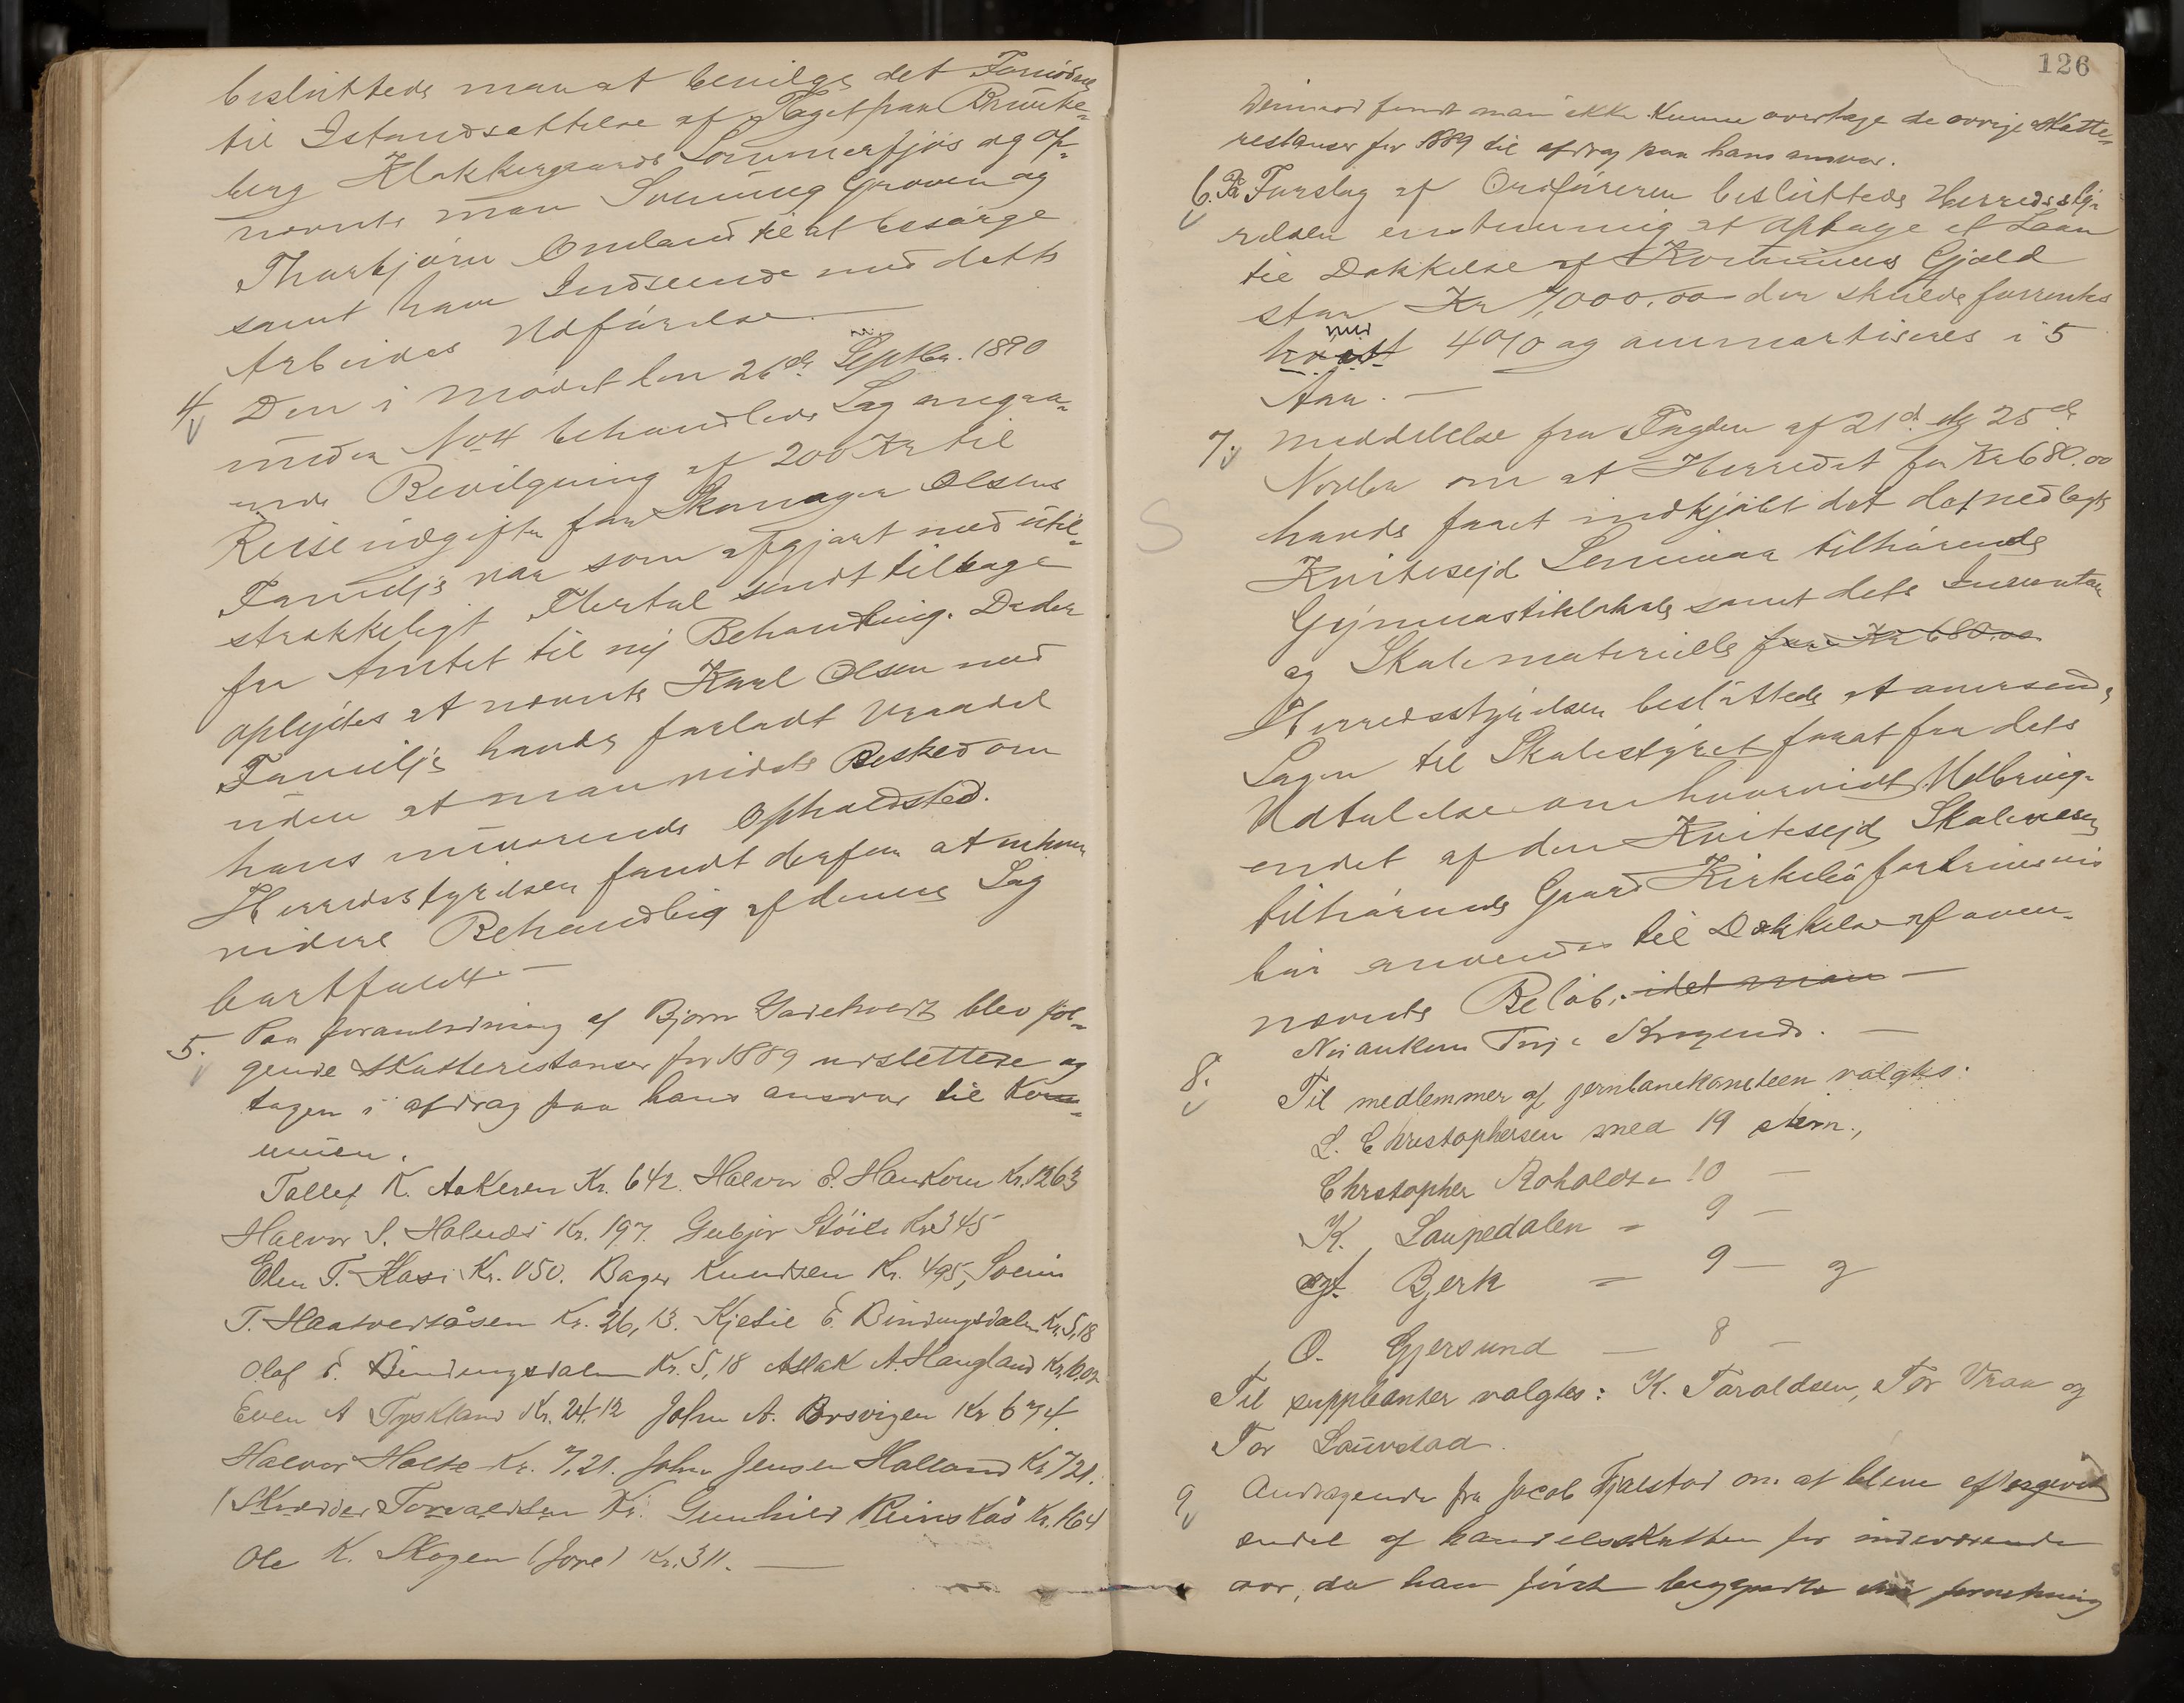 besluttede man at bevilge det Fornödne
til Istandsættelse af Taget paa Brunke-
berg Klokkergaards Sommerfjøs og op-
nævnte man Sveinung Groven og
Thorbjörn Omland til at besörge
samt have Indseende med dette
Arbeides Udförelse. —
4. Den i Mödet den 26de Septbr. 1890
under No 4 behandlede Sag angaa-
ende Bevilgning af 200 Kr til
Reiseudgifter for Skomager Olsens
Familje var som afgjort med util-
strækkeligt Flertal sendt tilbage
fra Amtet til ny Behandling. Da der
oplystes at nævnte Karl Olsen med
Familje havde forladt Vraadal
uden at man vidste Besked om
hans nuværende Opholdssted.
Herredsstyrelsen fandt derfor at enhver
videre Behandlig af denne Sag
bortfaldt. —
5. Paa foranledning af Bjørn Gardekvert blev føl-
gende Skatterestanser for 1889 udslettede og
tagen i afdrag paa hans ansvar til Kom-
munen.
Tallef K. Aakeren Kr. 642. Halvor E. Haukom Kr. 1263
Halvor S. Holmdi Kr. 197. Gubjør Stöile Kr 345
Elen T. Kasi Kr. 050. Bager Knudsen Kr. 495, Svein
T. Haatveitåsen Kr. 26,13. Kjetil E. Bindingsdalen Kr. 5,18
Olaf E. Bindingsdalen Kr. 5,18 Aslak A. Haugland Kr. 10.02
Even A Tyskland Kr. 24.12 John A. Borsvigen Kr. 674.
Halvor Holte Kr. 7.21. John Jensen Halland Kr 721.
(Skrædder Torvaldsen Kr. Gunhild Reinskås Kr. 164
Ole K. Skogen (Jore) Kr. 311. —
126
Derimod fandt man ikke kunne overtage de øvrige Skatte-
restanser for 1889 til afdrag paa hans ansvar.
6. Paa Forslag af Ordföreren besluttede Herredssty-
relsen enstemmig at optage et Laan
til Dækkelse af Kommunens Gjæld
stor Kr 7,000.00 der skulde forrentes
med 4 0/0 og ammortiseres i 5
Aar. —
7. Meddelelse fra Fogden af 21d. og 25de
Novbr om at Herredet for Kr 680.00
havde faaet indkjöbt det det nedlagte
Kvitesejd Seminar tilhörende
Gymnastiklokale samt dets Inventar
og Skolemateriell for Kr 680.00
Herredsstyrelsen besluttede at oversende
Sagen til Skolestyret for at faa dets
Udtalelse om hvorvidt Udbring-
endet af den Kvitesejd Skolevæsen
tilhörende Gaard Kirkelid fortrinsvis
bör anvendes til Dækkelse af oven-
nævnte Belöb. idet man —
Nu ankom Terje Kragenes. —
8. Til medlemmer af jernbanekomiteen valgtes:
L. Christophersen med 19 stem.,
Christopher Roholdt — 10 —
K. Laupedalen — 9 —
Bjerk — 9 — og
O. Gjersund — 8 —
Til suppleanter valgtes: K. Taraldsen, Tor Vraa og
Tor Laurstad.
9 Andragende fra Jacob Fjalestad om at blive eftergivet
endel af handelsskatten for indeværende
aar, da han først begyndte sin forretning